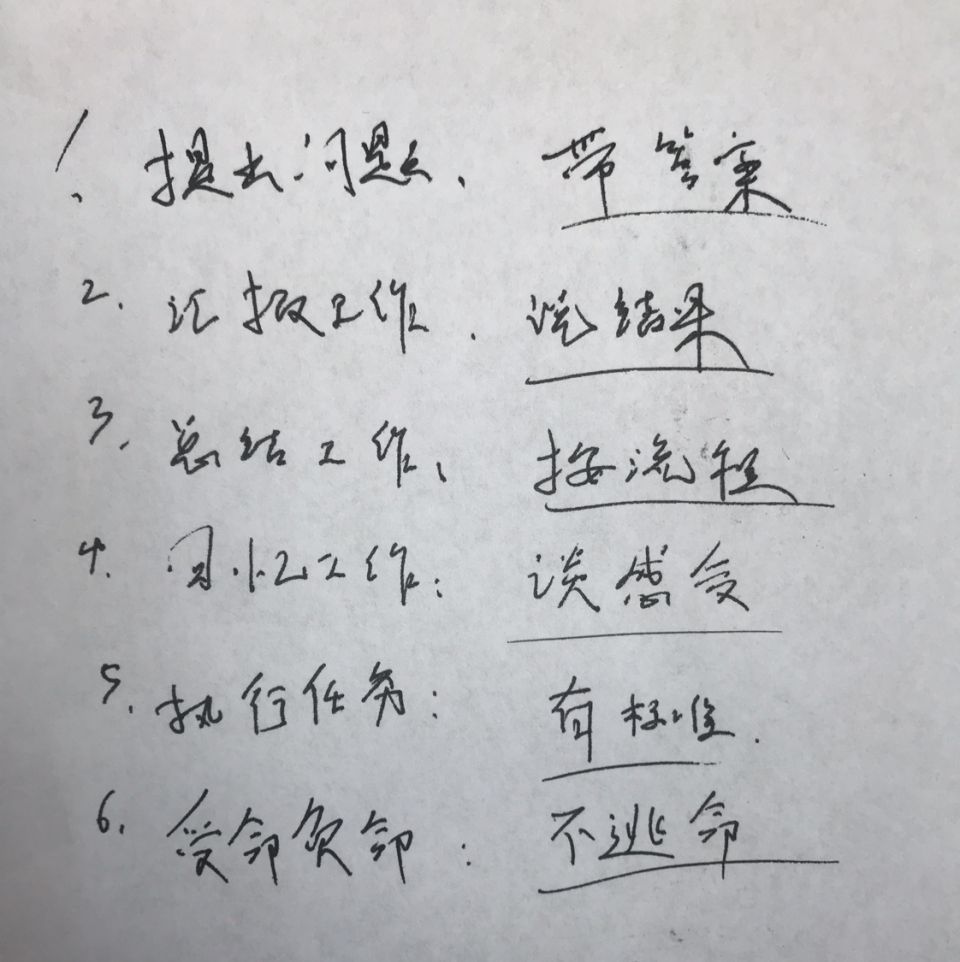 1. 提出问题、带答案
2. 汇报工作、说结果
3. 总结工作、按流程
4. 回忆工作：谈感受
5. 执行任务：有标准.
6. 受命负命：不逃命